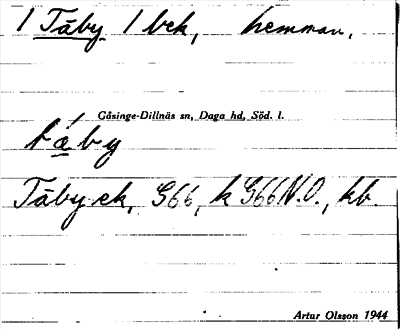 1 Täby 1 bek, hemman.
Gåsinge-Dillnäs sn, Daga hd, Söd. l.
tä́by
Täby ek, G66, k G66 N.O., kb.
Artur Olsson 1944